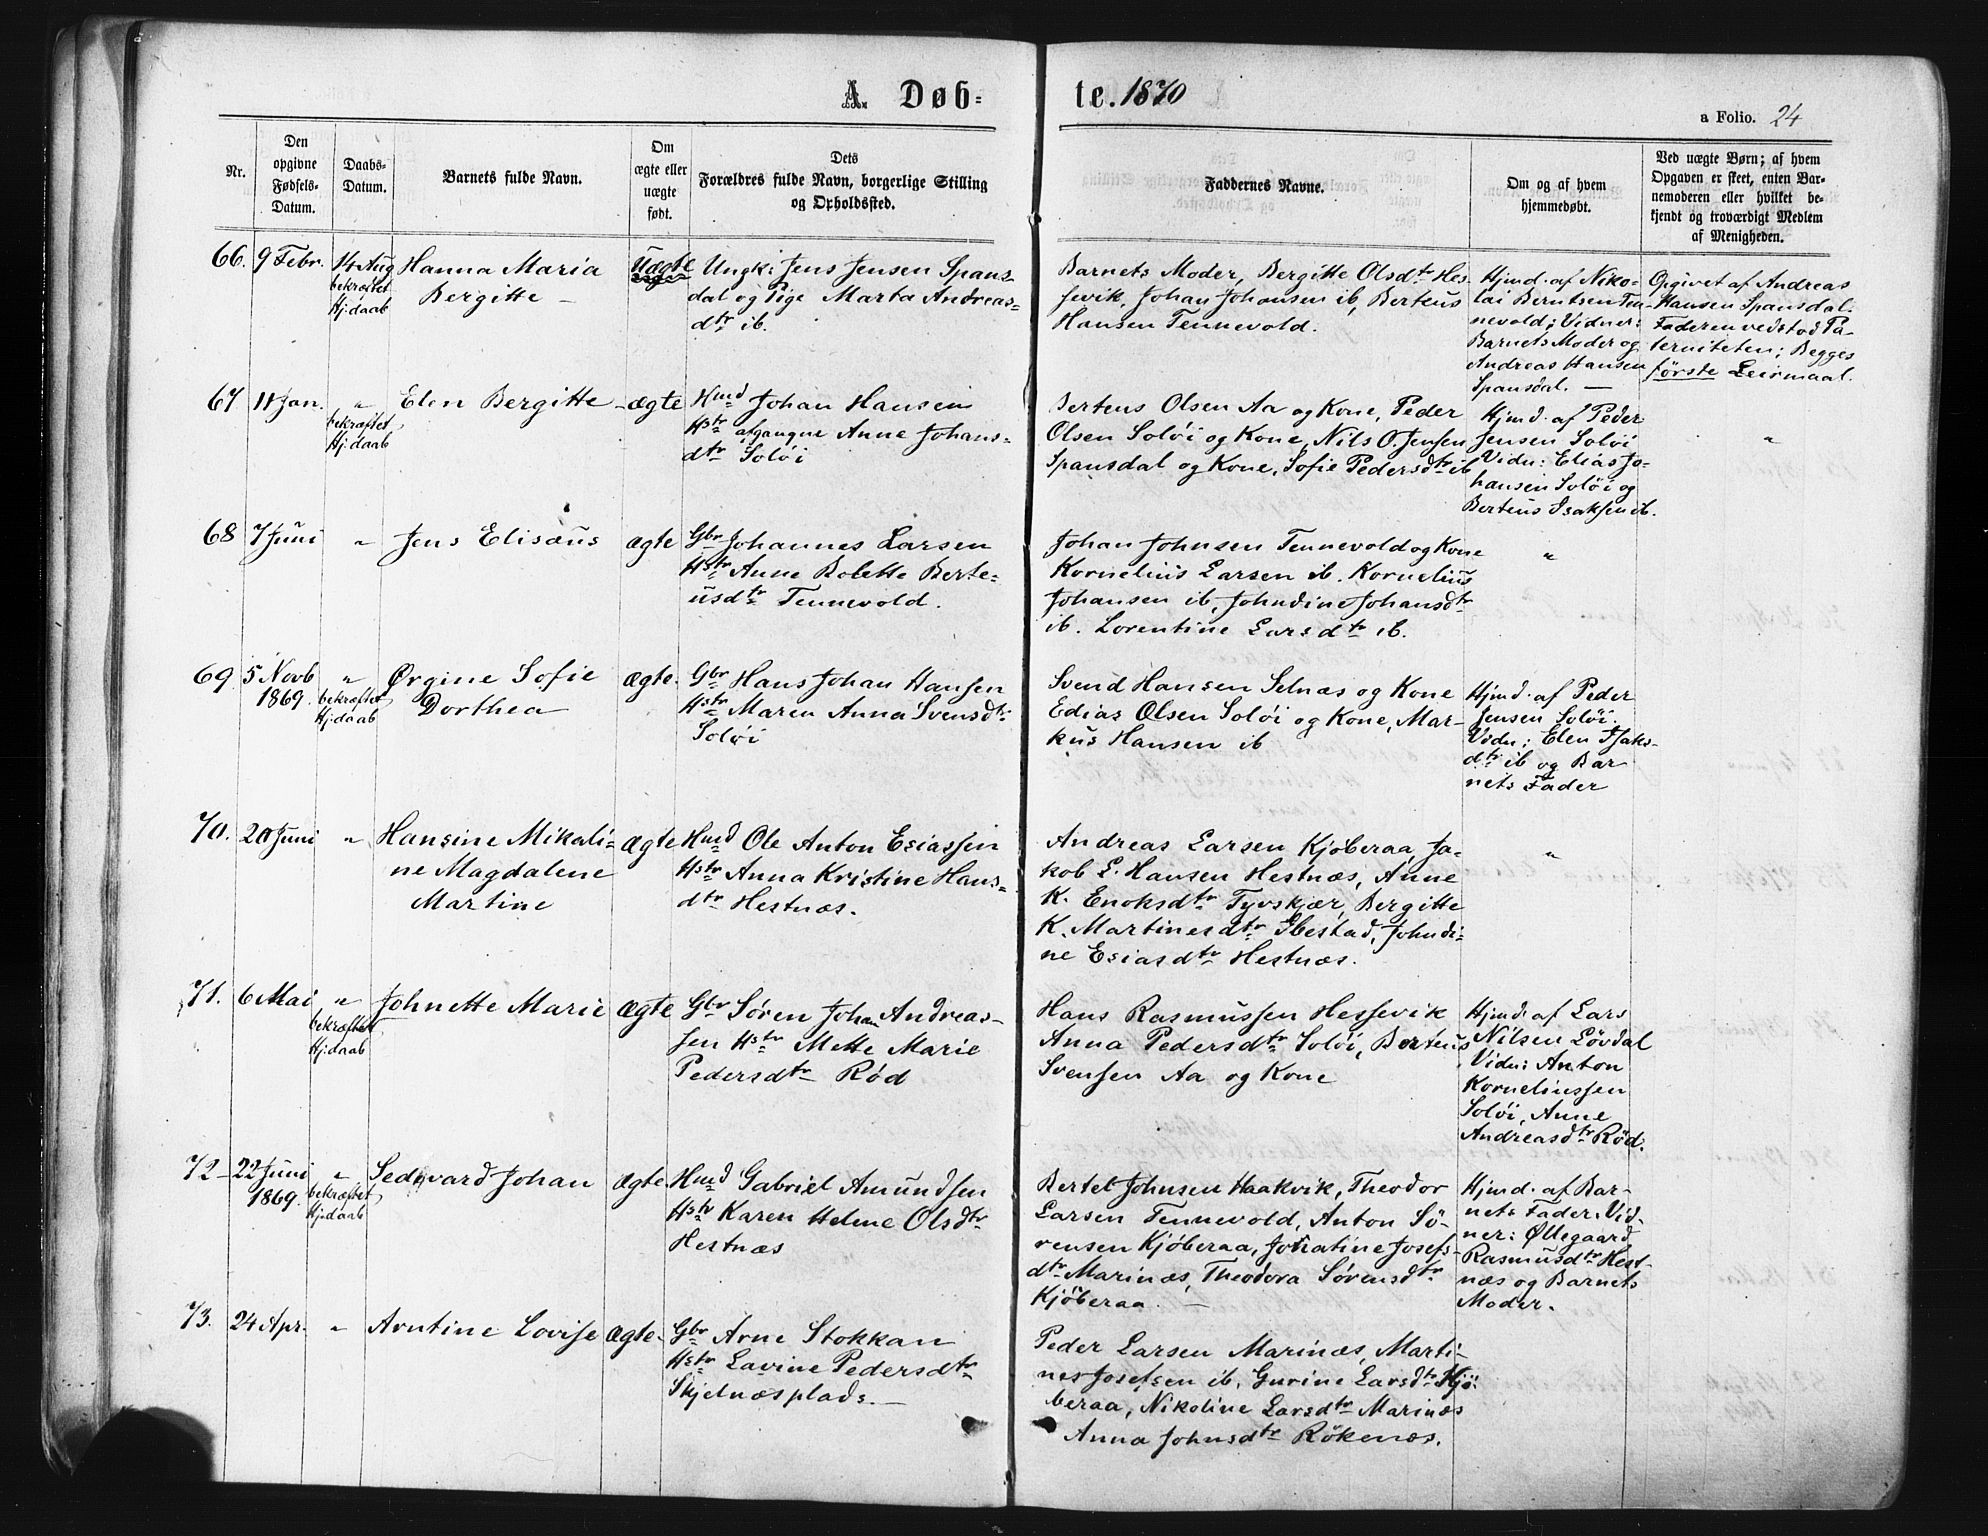 A. Døb=
te. 1870
a Folio. 24
Nr.
Den
opgivne
Fødsels-
Datum.
Daabs-
Datum.
Barnets fulde Navn.
Om
ægte eller
uægte
født.
Dets
Forældres fulde Navn, borgerlige Stilling
og Opholdssted.
Faddernes Navne.
Om og af hvem
hjemmedøbt.
Ved uægte Børn; af hvem
Opgaven er skeet, enten Bar-
nemoderen eller hvilket be-
kjendt og troværdigt Medlem
af Menigheden.
66. 9 Febr.
14 Aug
bekræftet
Hj:daab
Hanna Maria
Bergitte –
Uægte
Ungk: Jens Jensen Spans-
dal og Pige Marta Andreas-
dtr ib.
Barnets Moder, Bergitte Olsdtr Hes-
sevik, Johan Johansen ib, Berteus
Hansen Tennevold.
Hjmd. af Niko-
lai Berntsen Ten-
nevold; Vidner:
Barnets Moder og
Andreas Hansen
Spansdal. –
Opgivet af Andreas
Hansen Spansdal.
Faderen vedstod Pa-
terniteten; Begges
første Leirmaal.
67 11 Jan.
"
bekræftet
Hj:daab
Elen Bergitte
ægte
Hmd Johan Hansen
Hstr afgangne Anne Johans-
dtr Soløi
Berteus Olsen Aa og Kone, Peder
Olsen Soløi og Kone, Nils O. Jensen
Spansdal og Kone, Sofie Pedersdtr ib
Hjmd. af Peder
Jensen Soløi
Vidn: Elias Jo-
hansen Soløi og
Berteus Isaksen ib.
"
68 7 Juni
"
Jens Elisæus
ægte
Gbr Johannes Larsen
Hstr Anne Bolette Berte-
usdtr Tennevold.
Johan Johnsen Tennevold og Kone
Kornelius Larsen ib. Kornelius
Johansen ib, Johndine Johansdtr
ib. Lorentine Larsdtr ib.
"
69. 5 Novb
1869.
"
bekræftet
Hj:daab
Ørgine Sofie
Dorthea
ægte.
Gbr Hans Johan Hansen
Hstr Maren Anna Svensdtr
Soløi
Svend Hansen Selnæs og Kone
Edias Olsen Soløi og Kone, Mar-
kus Hansen ib
Hjmd. af Peder
Jensen Soløi.
Vidn: Elen Isaks-
dtr ib og Bar
nets Fader
70. 20 Juni
"
Hansine Mikali-
ne Magdalene
Martine
ægte
Hmd Ole Anton Esiassen
Hstr Anna Kristine Hans-
dtr Hestnæs.
Andreas Larsen Kjøberaa, Ja-
kob L. Hansen Hestnæs, Anne
K. Enoksdtr Tyvskjær, Bergitte
K. Martinesdtr Ibestad, Johndi-
ne Esiasdtr Hestnæs.
"
71. 6 Mai
"
bekræftet
Hj:daab
Johnette Marie
ægte
Gbr Søren Johan Andreas-
sen Hstr Mette Marie
Pedersdtr Rød
Hans Rasmussen Hessevik
Anna Pedersdtr Soløi, Berteus
Svensen Aa og Kone
Hjmd. af Lars
Nilsen Lövdal
Vidn: Anton
Korneliussen
Soløi, Anne
Andreasdtr Rød.
72 – 22 Juni
1869.
"
bekræftet
Hj:daab
Sedevard Johan
ægte.
Hmd Gabriel Amundsen
Hstr Karen Helene Olsdtr
Hestnæs
Bertet Johnsen Haakvik, Theodor
Larsen Tennevold, Anton Sö-
rensen Kjøberaa, Josefs-
dtr Marinæs, Theodora Sørensdtr
Kjøberaa. –
Hjmd. af Bar-
nets Fader. Vid-
ner: Øllegaard
Rasmusdtr Hest-
næs og Barnets
Moder.
73. 24 Apr.
"
Arntine Lovise
ægte.
Gbr Arne Stokkan
Hstr Lavine Pedersdtr
Skjelnæsplads. –
Peder Larsen Marinæs, Marti-
nes Josefsen ib, Gurine Larsdtr Kjø-
beraa, Nikoline Larsdtr Marinæs
Anna Johnsdtr Rökenæs.